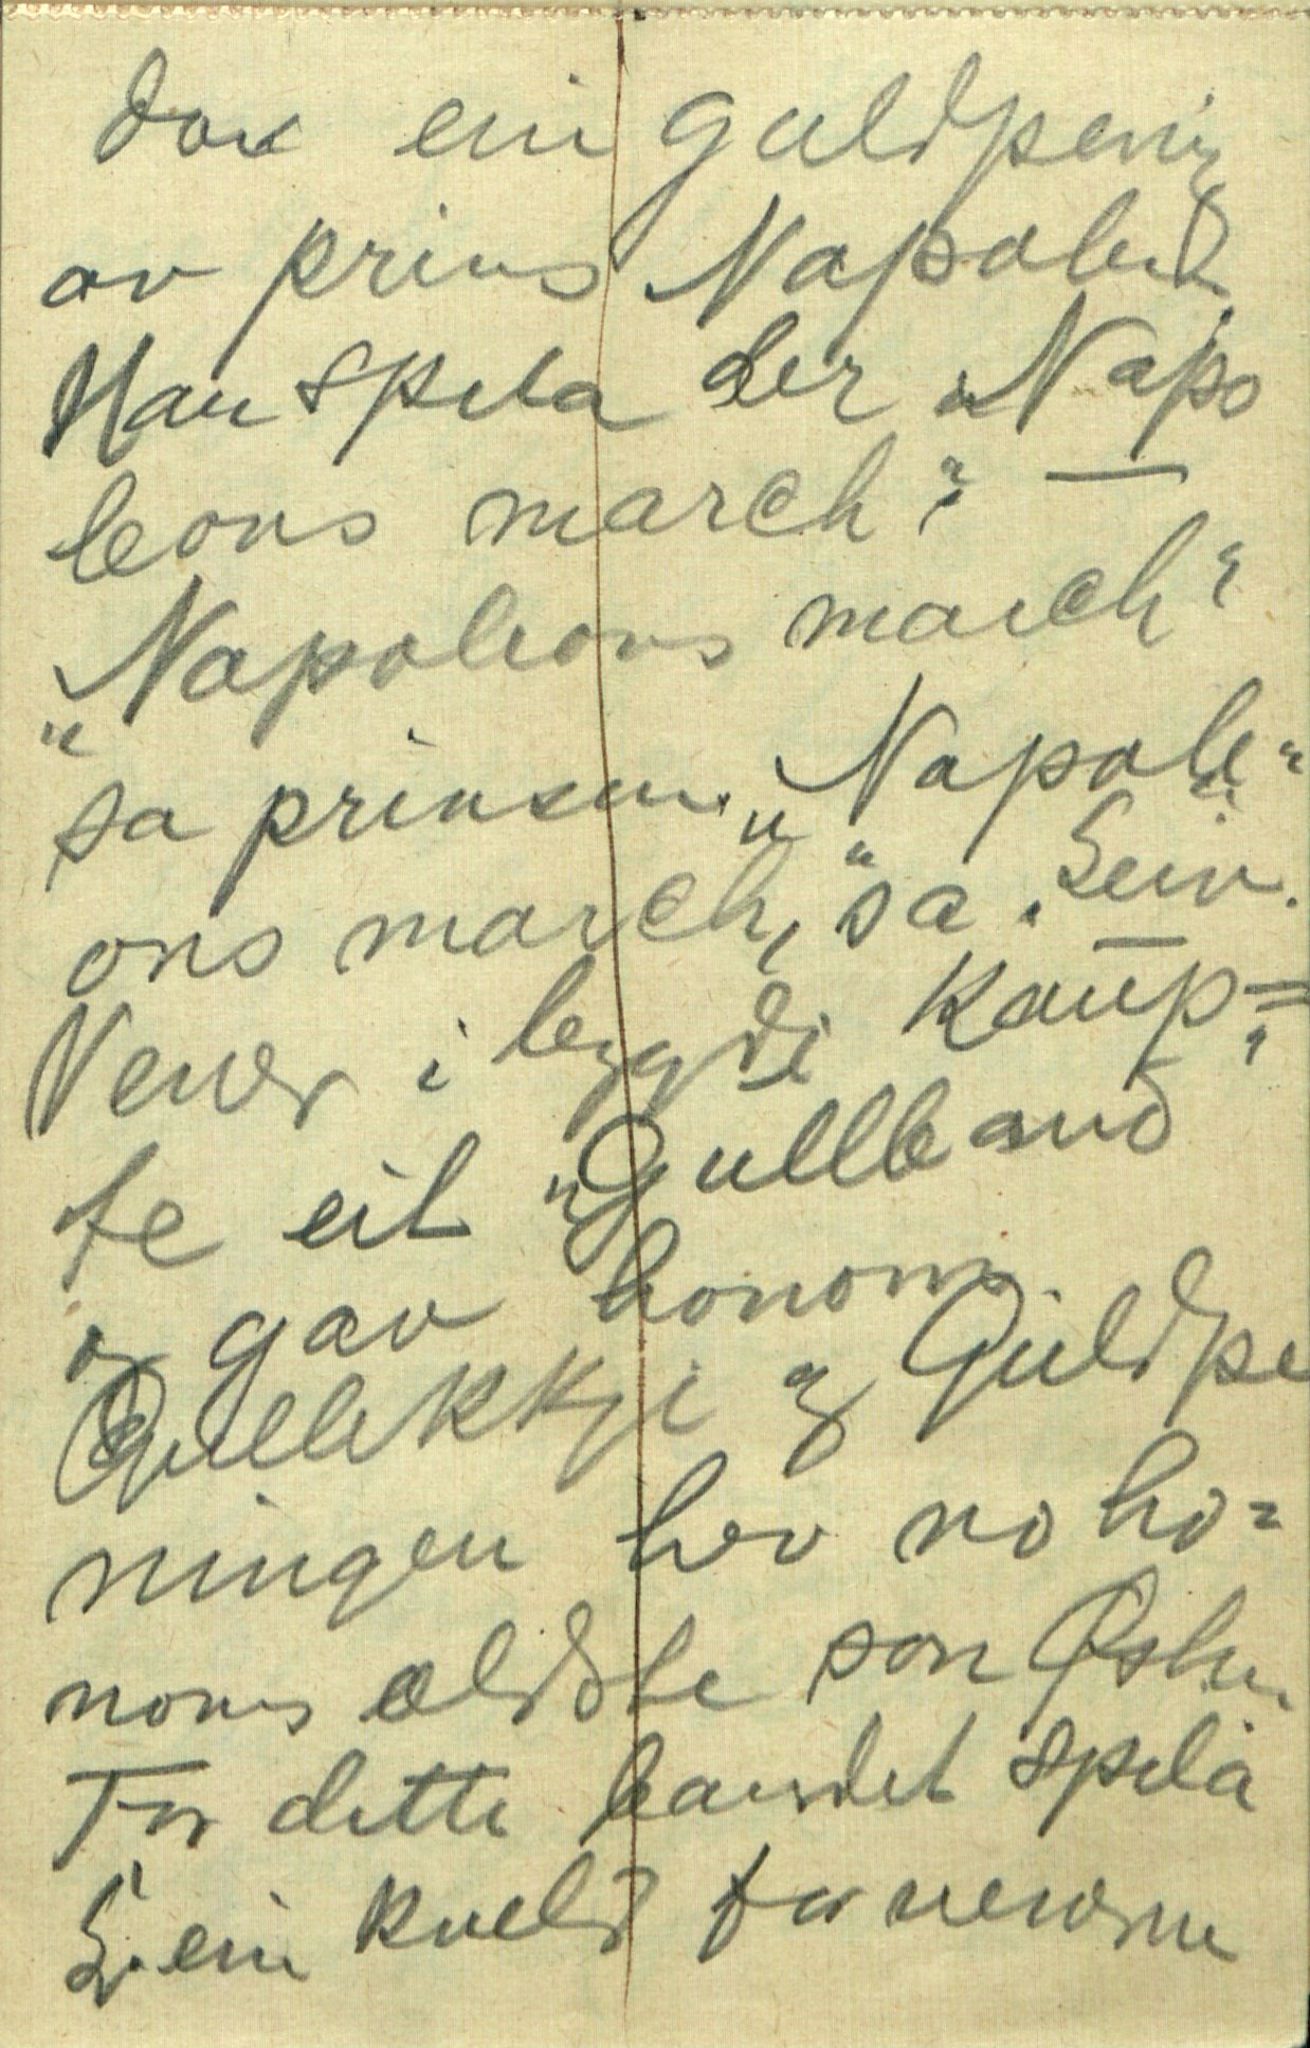 dor ein guldpenig
av prins Napoleon
Han spela der „Napo
leons march“. —
„Napoleons march“
sa prinsen. „Napole-
ons march,“ sa
Vener i bygdi kaup-
te eit „Gullband
og gav honom
Gullekkji og Guldpe
ningen hev no ho-
noms eldste son
For dette bandet spela
S. ein kveld for venerne